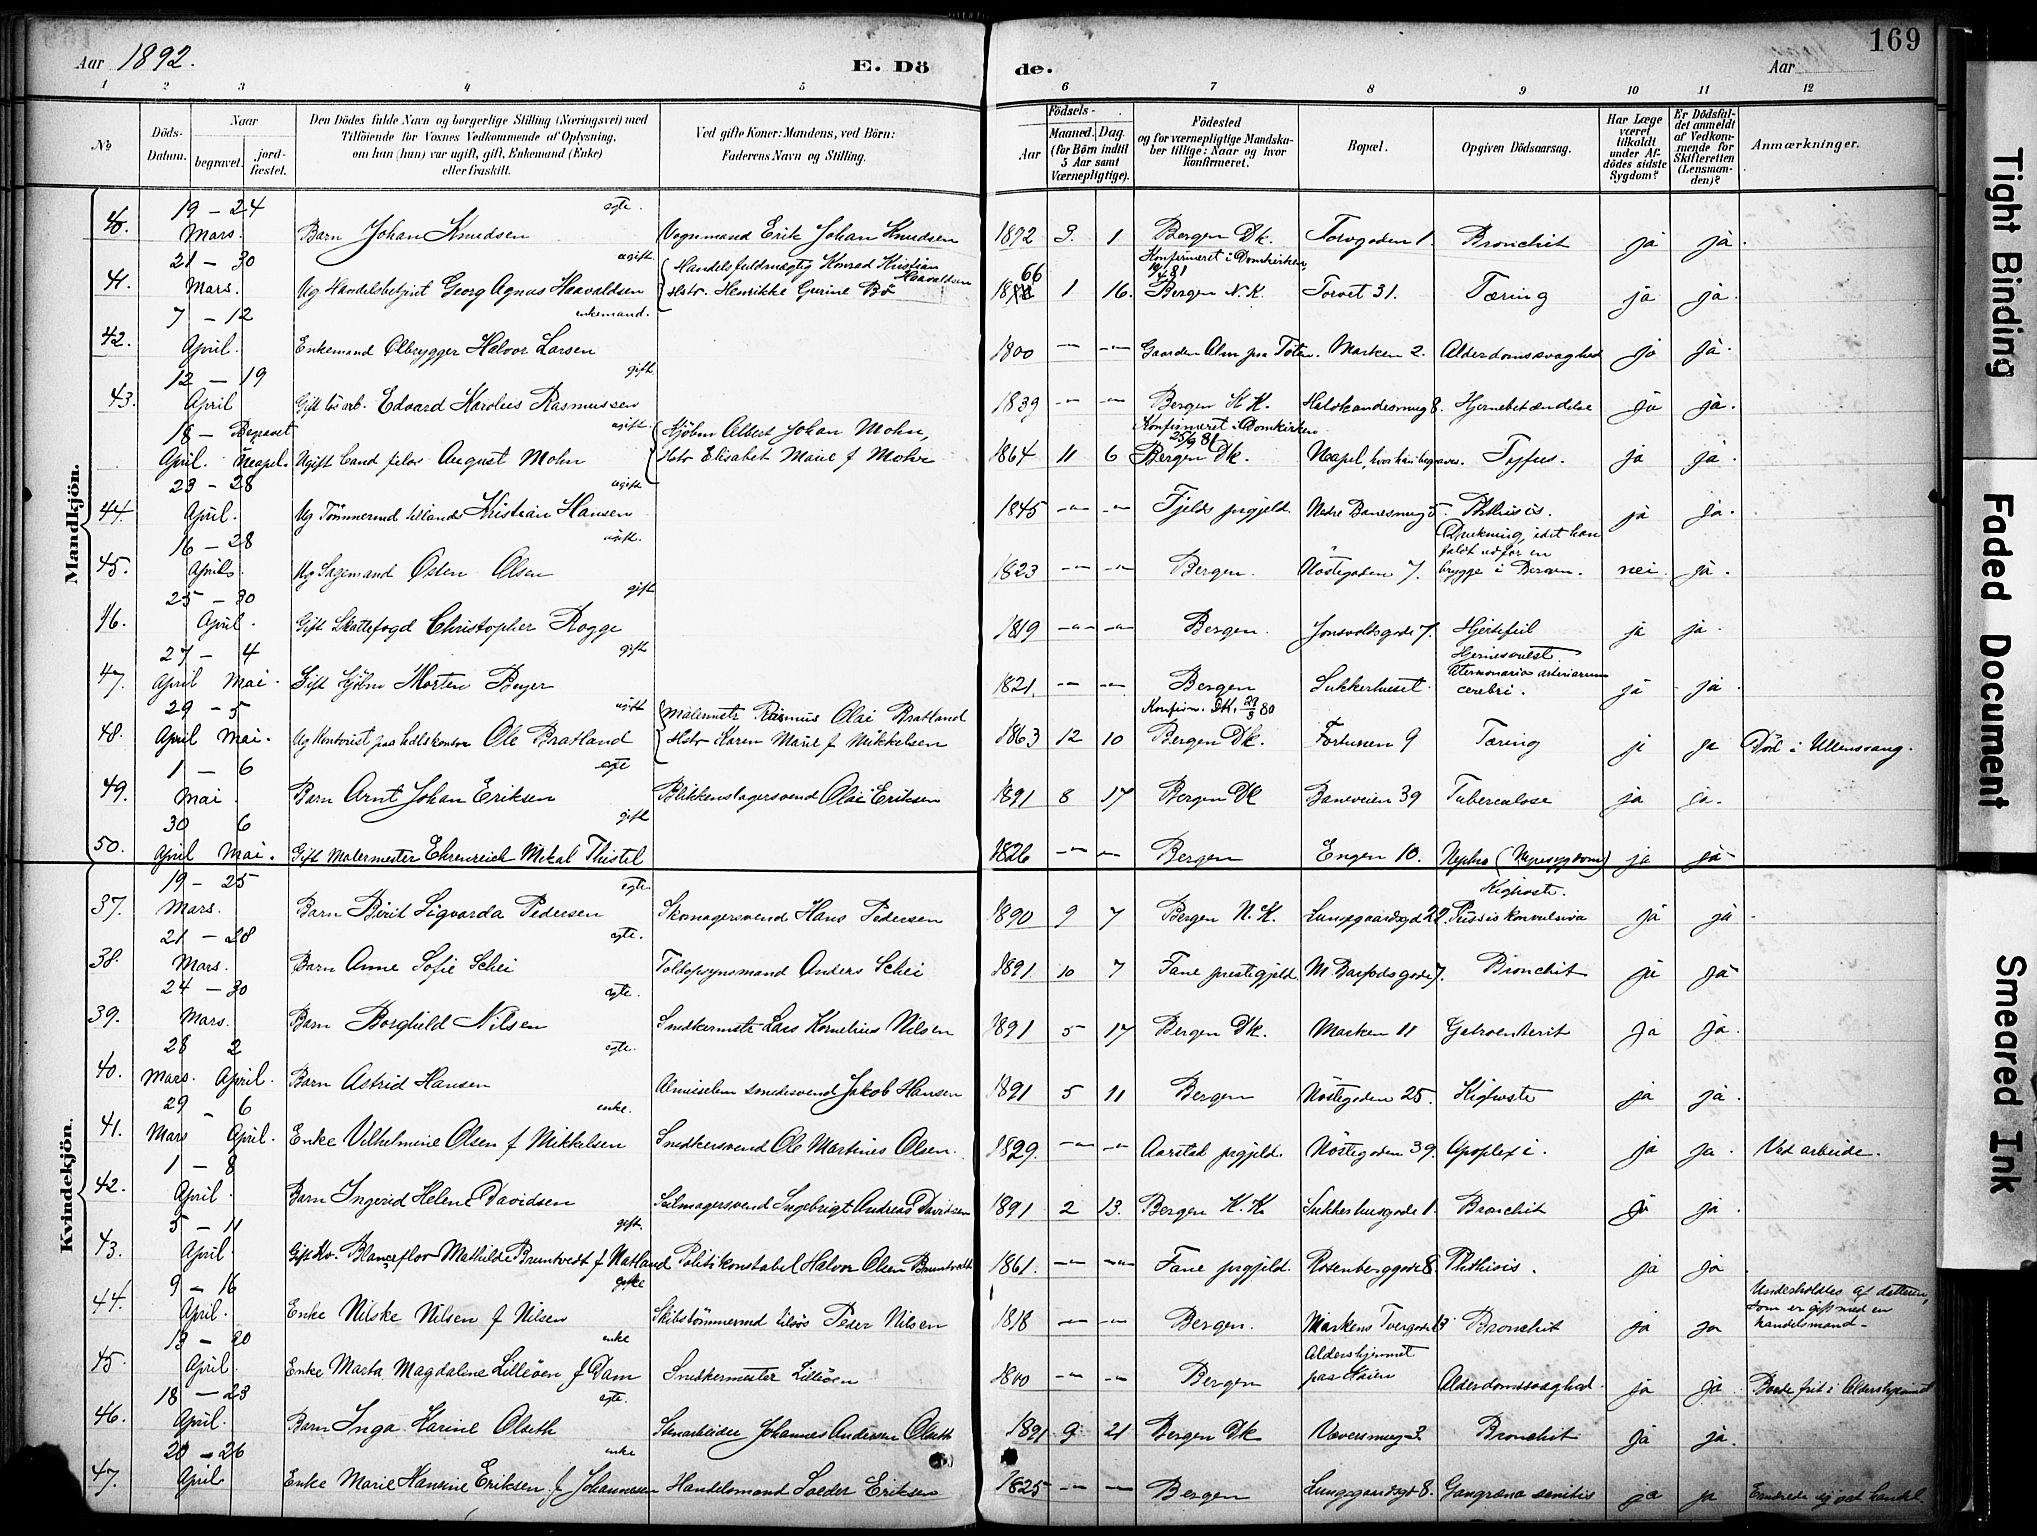 169
Aar 1892. E. Döde. Aar
1 2 3 4 5 6 7 8 9 10 11 12
№ Döds-Datum. Naar begravet. jord-fæstet. Den Dödes fulde Navn og borgerlige Stilling (Næringsvei) med Tilföiende for Voxnes Vedkommende af Oplysning, om han (hun) var ugift, gift, Enkemand (Enke) eller fraskilt. Ved gifte Koner: Mandens, ved Börn: Faderens Navn og Stilling. Födsels- Aar Maaned. Dag. (for Börn indtil 5 Aar samt Værnepligtige). Födested og for værnepligtige Mandska-ber tillige: Naar og hvor konfirmeret. Bopæl. Opgiven Dödsaarsag. Har Læge været tilkaldt under Af-dödes sidste Sygdom? Er Dödsfal-det anmeldt af Vedkom-mende for Skifteretten (Lensman-den)? Anmærkninger.
Mandkjön.
19 – 24 Mars. egte. Barn Johan Knudsen Vognmand Erik Johan Knudsen 1892 3. 1 Bergen Dk. Torvgaden 1. Bronchit ja ja.
41. 21 – 30 Mars. ugift Ug Handelsbetjent Georg Agnus Haavaldsen Handelsfuldmægtig Konrad Kristian Haavaldsen Hstr. Henrikke Gurine Bö 1866 1 16. Konfirmeret i Domkirken 81 Bergen N.K. Torvet 31. Tæring ja ja.
42. 7 – 12 April. enkemand. Enkemand Ølbrygger Halvor Larsen 1800 — — Gaarden Alm paa Toten. Marken 2. Alderdomssvaghed ja ja.
43. 12 – 19 April gift Gift lösarb. Edvard Karolius Rasmussen 1839 — — Bergen K.K. 8. Hjernebetændelse ja ja.
18 – Begravet April. Neapel. ugift Ugift Cand filos August Mohn Kjöbm Albert Johan Mohn, Hstr Elisabet Marie f Mohr 1864 11 6 Konfirmeret Domkirken 25/9 81 Bergen Dk. Neapel, hvor han begraves. Tyfus. ja ja.
44. 23 – 28 April. ugift Ug Tömmermd tillands Kristian Hansen 1845 — — Fjelds prgjeld. Nedre 5. Phthisis. ja ja.
45. 16 – 28 April. ugift. Ug Sagemand Østen Olsen 1823 — — Bergen. Nöstegaden 7. Drukning, idet han faldt udfor en brygge i Bergen. nei ja.
46. 25 – 30 April. gift Gift Skattefogd Christopher Rogge 1819 — — Bergen. 7. Hjertefeil ja ja.
47. 27 – 4 April Mai. gift Gift Kjöbm Morten Beyer 1821. — — Bergen Sukkerhuset. arteriarum cerebri. ja ja.
48. 29 – 5 April Mai. ugift Ug Kontorist paa Ole Bratland Malermstr Rasmus Olai Bratland Hstr Karen Marie f Mikkelsen 1863 12 10 Konfirm. DK. 80 Bergen Dk. Fortunen 9 Tæring ja ja Död i Ullensvang.
49. 1 – 6 Mai egte Barn Arnt Johan Eriksen Blikkenslagersvend Olai Eriksen 1891 8 17 Bergen Dk Baneveien 39 Tuberculose ja ja.
50. 30 6 April Mai. gift Gift Malermester Ehrenreich Mikal Thistel 1826 — — Bergen Engen 10. Nephro (Nyresygdom) ja ja
Kvindekjön.
37. 19 – 25 Mars. egte. Barn Birit Sigvarda Pedersen Skomagersvend Hans Pedersen 1890 9 7 Bergen N.K. Lungegaardsgd 22. Kighoste. Tussis konvulsiva ja ja
38. 21 – 28 Mars. egte. Barn Anne Sofie Schei Toldopsynsmand Anders Schei 1891. 10 7 Fane prestegjeld. 7. Bronchit ja ja
39. 24 – 30 Mars. egte. Barn Borghild Nilsen Snedkermstr Lars Kornelius Nilsen 1891 5 17 Bergen Dk. Marken 11 Gastroenterit ja ja.
40. 28 2 Mars. April. egte. Barn Astrid Hansen smedesvend Jakob Hansen 1891 5 11 Bergen Nöstegaden 25. Kighoste ja ja.
41. 29 – 6 Mars – April. enke. Enke Vilhelmine Olsen f Mikkelsen Snedkersvend Ole Martinus Olsen. 1829. — — Aarstad prgjeld. Nöstegaden 39. Apoplexi. ja ja. Ved arbeide.
42. 1 – 8 April. Barn Ingerid Helene Davidsen Seilmagersvend Ingebrigt Andreas Davidsen 1891 2 13. Bergen K.K. Sukkerhusgade 1. Bronchit ja ja.
43. 5 – 11 April. gift. Gift Kv. Blanceflor Mathilde Bruntvedt f Natland Politikonstabel Halvor Olsen Bruntvedt 1861. — — Fane prgjeld. Rosenberggade 8. Phthisis. ja ja
44. 9 – 16 April. Enke Nilske Nilsen f Nilsen Skibstömmermd Peder Nilsen 1818 — — Bergen. Markens Tvergade 13 Bronchit ja ja Underholdes af datteren, som er gift med en handelsmand.
45. 13 – 20 April. enke Enke Marta Magdaline Lilleöen f Dam Snedkermester Lilleöen 1800 — — Bergen Aldershjemmet paa Möien Alderdomssvaghed. ja ja. Boede frit i Aldershjemmet
46. 18 – 23 April. egte. Barn Inga Karine Olseth Stenarbeider Johannes Andersen Olseth 1891 9 21 Bergen Dk 3. Bronchit ja ja.
47. 20 – 26 April enke Enke Marie Hansine Eriksen f Johannesen Handelsmand Soeder Eriksen 1825 — — Bergen Lungegaardsgt 8. Gangræna senilis ja ja Ernærede sig ved handel
Tight Binding
Faded Document
Smeared Ink